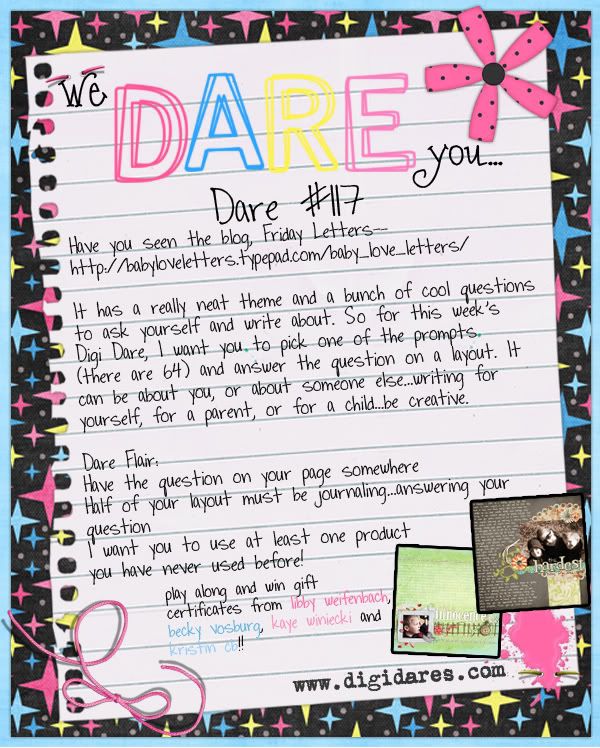 We DARE you...
Dare #117
Have you seen the blog, Friday Letters--
http://babyloveletters.typepad.com/baby_love_letters/
It has a really neat theme and a bunch of cool questions
to ask yourself and write about. So for this week's
Digi Dare, I want you to pick one of the prompts
(there are 64) and answer the question on a layout. It
can be about you, or about someone else...writing for
yourself, for a parent, or for a child...be creative.
Dare Flair:
Have the question on your page somewhere
Half of your layout must be journaling...answering your
question
I want you to use at least one product
you have never used before!
play along and win gift
certificates from libby weifenbach,
becky vosburg, kaye winiecki and
kristin cb!!
hardest
innocence
www.digidares.com